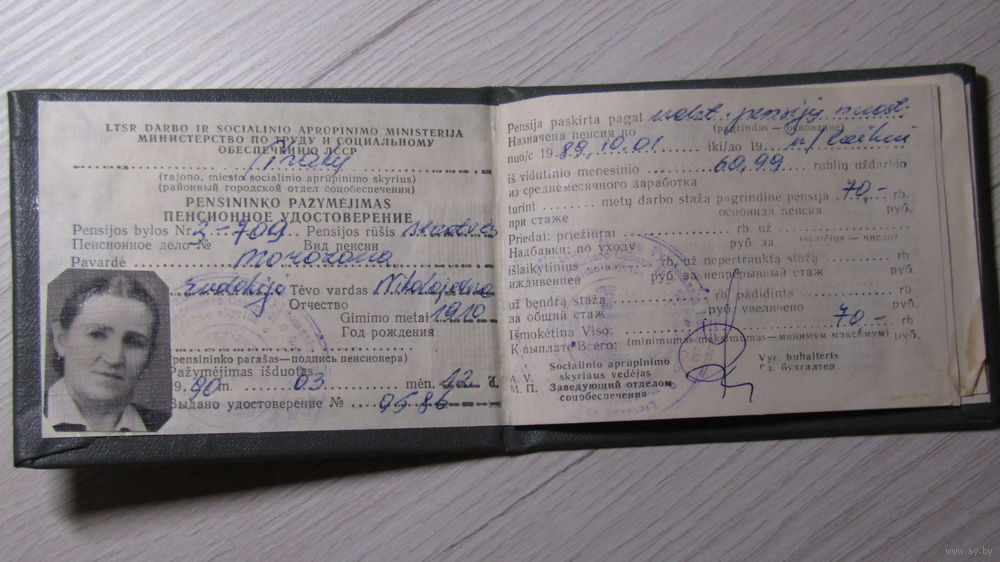 LTSR DARBO IR SOCIALINIO APRŪPINIMO MINISTERIJA
МИНИСТЕРСТВО ПО ТРУДУ И СОЦИАЛЬНОМУ
ОБЕСПЕЧЕНИЮ ЛССР
(rajono, miesto socialinio aprūpinimo skyrius)
(районный городской отдел соцобеспечения)
PENSININKO PAŽYMĖJIMAS
ПЕНСИОННОЕ УДОСТОВЕРЕНИЕ
Pensijos bylos Nr. 2-709 Pensijos rūšis
Пенсионное дело № Вид пенсии
Pavardė Morozova
Evdokija Tėvo vardas Nikolajevna
Отчество
Gimimo metai 1910
Год рождения
(pensininko parašas—подпись пенсионера)
Pažymėjimas išduotas
19 90 m. 03 mėn. 12
Выдано удостоверение № 0586
Pensija paskirta pagal valst. pensijų nuost.
Назначена пенсия по (pagrindas — основание)
nuo/с 19 89, 10.01 iki/до 19
iš vidutinio mėnesinio 60,99 rublių uždarbio
из среднемесячного заработка
turint metų darbo stažą pagrindinė pensija 70,- rb.
при стаже основная пенсия руб.
Priedai: priežiūrai rb. už
Надбавки: по уходу руб. за (skaičius — число)
išlaikytinius rb, už nepertrauktą stažą rb.
иждивенцев руб. за непрерывный стаж руб.
už bendrą stažą rb. padidinta rb.
за общий стаж руб. увеличено руб.
Išmokėtina Viso: 70.- rb
К выплате Всего: (minimumas-maksimumas—минимум-максимум) руб.
Socialinio aprūpinimo
skyriaus vedėjas
Vyr. buhalteris
Гл. бухгалтер
A. V.
М. П. Заведующий отделом
соцобеспечения
www.ay.by